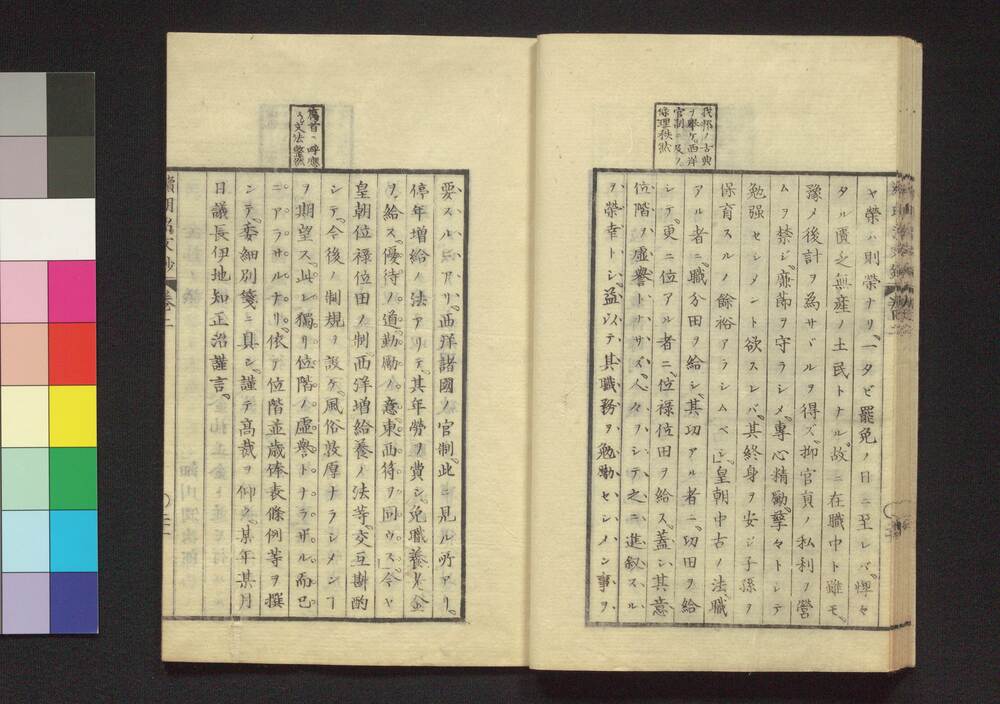 我邦ノ古典
ヲ擧ケ西洋
官制ニ及ノ
條理秩然
ヤ榮ハ則榮ナリ一タビ罷免ノ日ニ至レバ惸々
タル匱乏無産ノ土民トナル故ニ在職中ト雖モ
豫メ後計ヲ爲サヾルヲ得ズ抑官員ノ私利ヲ營
ムヲ禁ジ廉節ヲ守ラシメ專心精勵孳々トシテ
勉强セシメント欲スレバ其終身ヲ安ジ子孫ヲ
保育スルノ餘裕アラシムベシ」皇朝中古ノ法職
アル者ニ職分田ヲ給シ其功アル者ニ功田ヲ給
シテ更ニ位アル者ニ位禄位田ヲ給ス蓋シ其意
位階ヲ虚譽トナサズ人々ヲシテ之ニ進叙スル
ヲ榮幸トシ益以テ其職務ヲ勉勵セシメン事ヲ
舊首ニ呼應
文法整然
要スルニアリ西洋諸國ノ官制此ニ見ル所アリ
停年増給ノ法アリテ其年勞ヲ賞シ免職養老金
ヲ給ス優待ノ道勸勵ノ意東西符ヲ同ウス」今ヤ
皇朝位禄位田ノ制西洋増給養ノ法等交互斟酌
シテ今後ノ制規ヲ設ケ風俗敦厚ナラシメンヿ
ヲ期望ス此レ獨リ位階ノ虚譽トナラザル而已
ニアラサルナリ依テ位階並歳俸表條例等ヲ撰
ンテ委細別箋ニ具シ謹テ高裁ヲ仰ク某年某月
日議長伊地知正治謹言
續明治文鈔
卷上